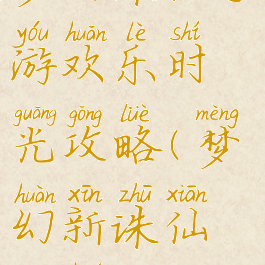 yóu huān lè shí
游欢乐时
guāng gōng lüè mèng
光攻略(梦
huàn xīn zhū xiān
幻新诛仙